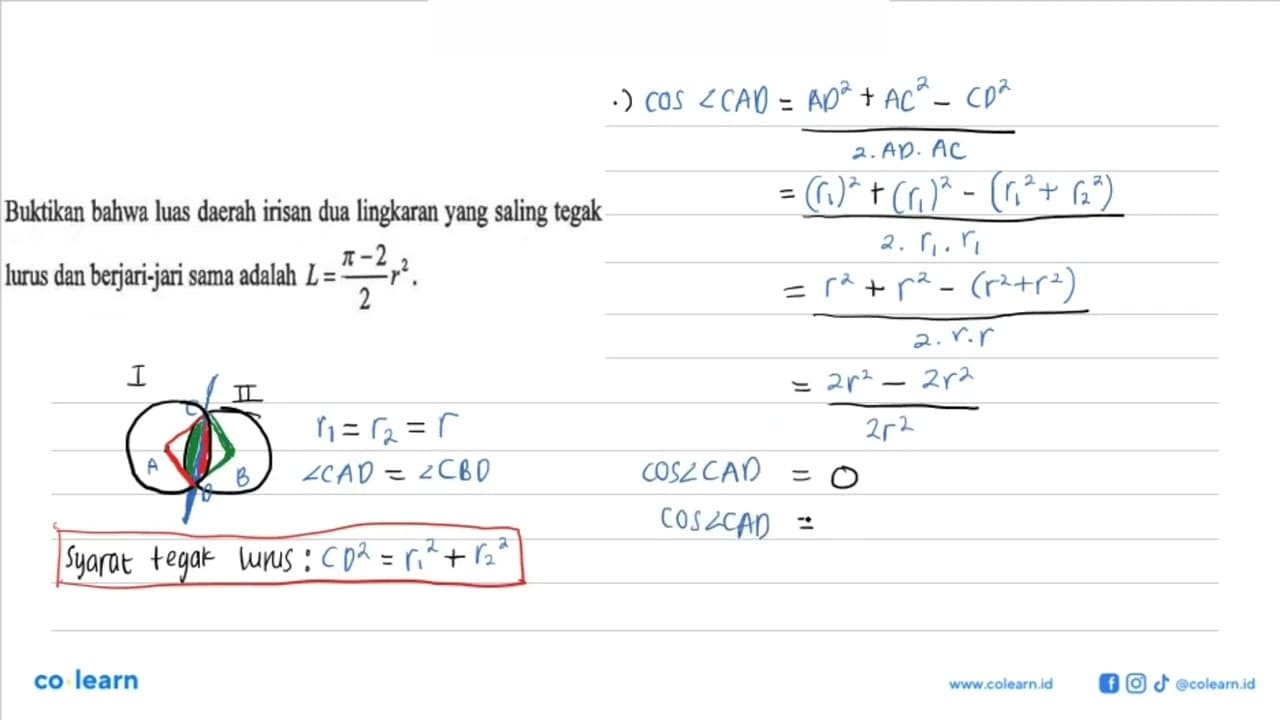 Buktikan bahwa luas daerah irisan dua lingkaran yang saling tegak
lurus dan berjari-jari sama adalah L = \frac{π-2}{2} r².
I
II
C
A
B
D
r₁ = r₂ = r
∠CAD = ∠CBD
Syarat tegak lurus : CD² = r₁² + r₂²
·) cos ∠CAD = \frac{AD² + AC² - CD²}{2. AD. AC}
= \frac{(r₁)² + (r₁)² - (r₁² + r₂²)}{2. r₁. r₁}
= \frac{r² + r² - (r²+r²)}{2. r.r}
= \frac{2r² - 2r²}{2r²}
cos∠CAD = 0
cos∠CAD =
co learn
www.colearn.id
@colearn.id